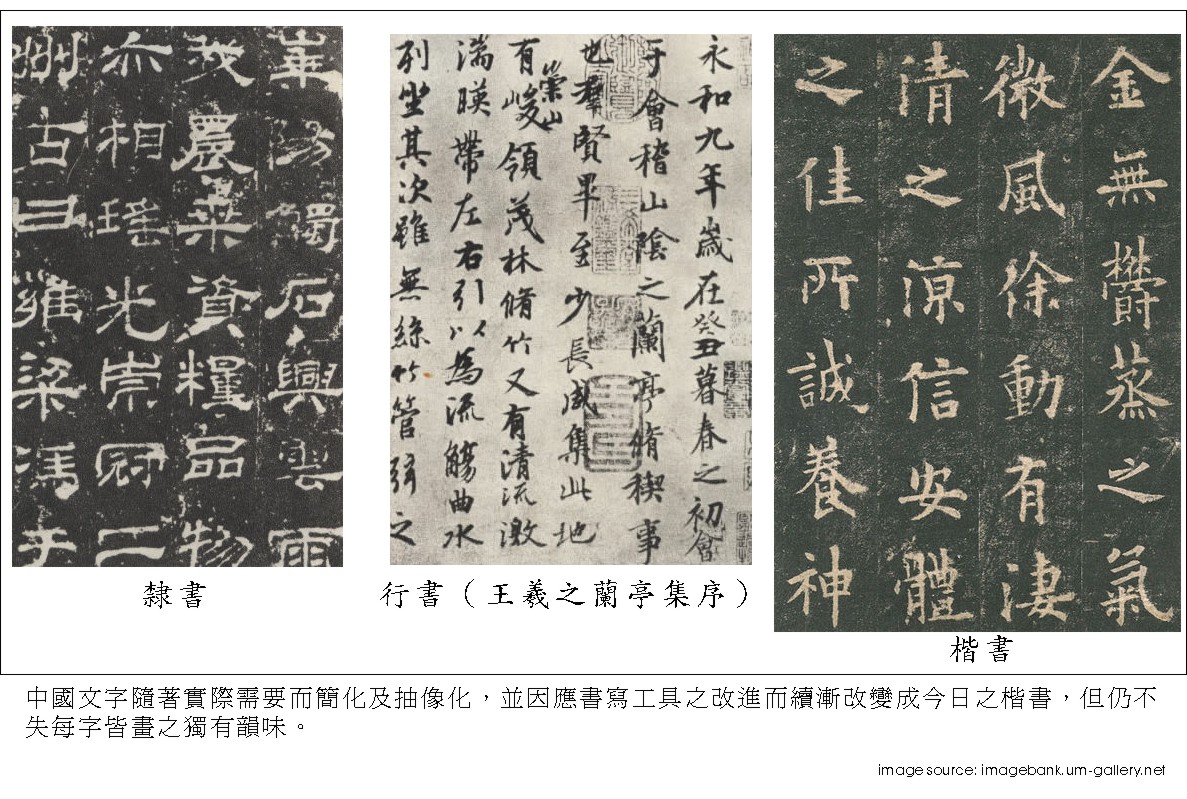 華陽觸石興雲雨
我農桑資糧品物
亦相瑤光崇冠二
州古曰雍梁馮于
隸書
永和九年歲在癸丑暮春之初會
于會稽山陰之蘭亭脩稧事
也羣賢畢至少長咸集此地
有崇山峻領茂林脩竹又有清流激
湍暎帶左右引以為流觴曲水
列坐其次雖無絲竹管弦之
行書（王羲之蘭亭集序）
金無欝蒸之氣
微風徐動有淒
清之涼信安體
之佳所誠養神
楷書
中國文字隨著實際需要而簡化及抽像化，並因應書寫工具之改進而續漸改變成今日之楷書，但仍不
失每字皆畫之獨有韻味。
image source: imagebank.um-gallery.net